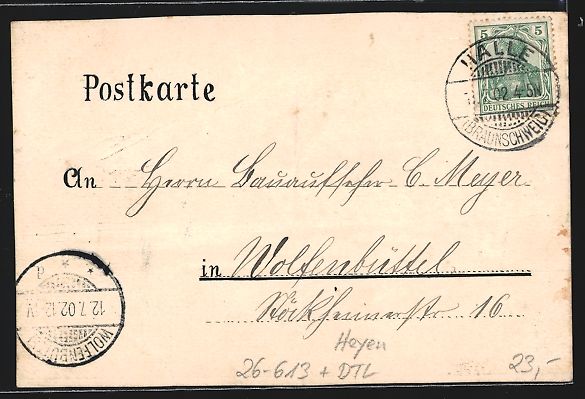 5 5
DEUTSCHES REICH
HALLE
02 4-5N
(BRAUNSCHWEIG)
Postkarte
An Herrn Bauaufseher C. Meyer
in Wolfenbüttel
Stöckheimerstr 16
P
12.7.02.12-
WOLFENBÜ
Heyen
26-613 + DTL
23,-